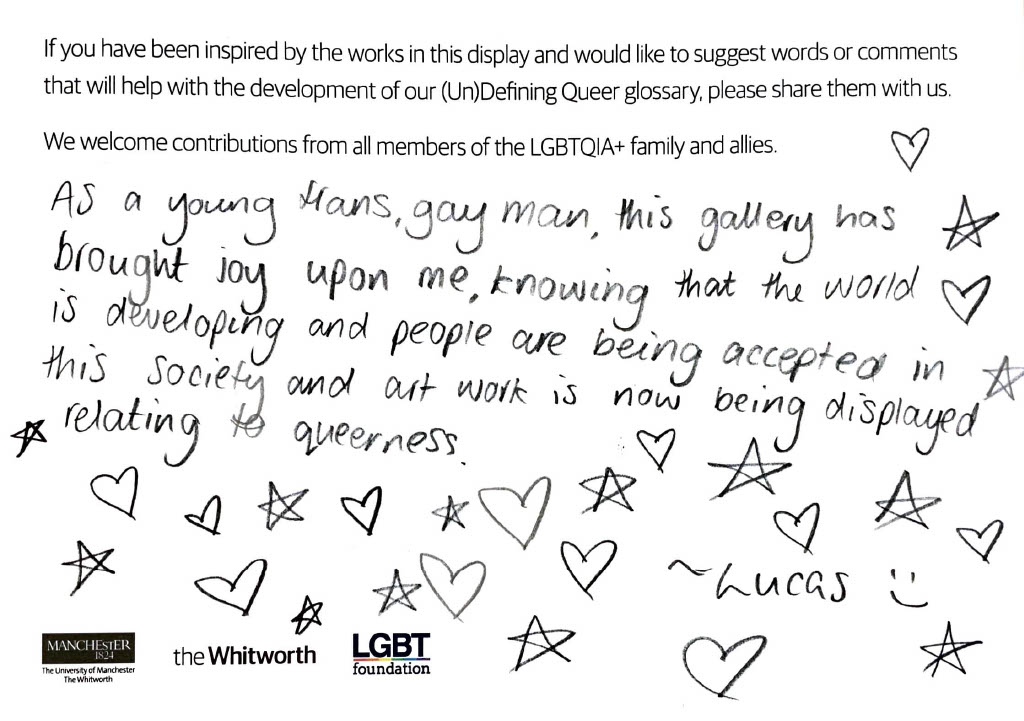 If you have been inspired by the works in this display and would like to suggest words or comments
that will help with the development of our (Un)Defining Queer glossary, please share them with us.
We welcome contributions from all members of the LGBTQIA+ family and allies.
As a young trans, gay man, this gallery has
brought joy upon me, knowing that the world
is developing and people are being accepted in
this society and art work is now being displayed
relating to queerness.
~Lucas :)
MANCHESTER
1824
The University of Manchester
The Whitworth
the Whitworth
LGBT
foundation